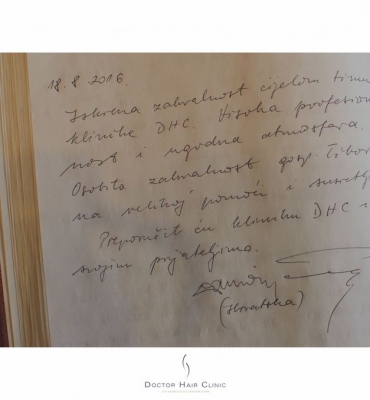 18.8.2016.
Iskrena zahvalnost cijelom timu
klinike DHC. Visoka profesional
nost i ugodna atmosfera.
Osobita zahvalnost gosp. Tibor
na velikoj pomoći i susretlj
Preporučit ću kliniku DHC i
svojim prijateljima.
(Hrvatska)
DOCTOR HAIR CLINIC